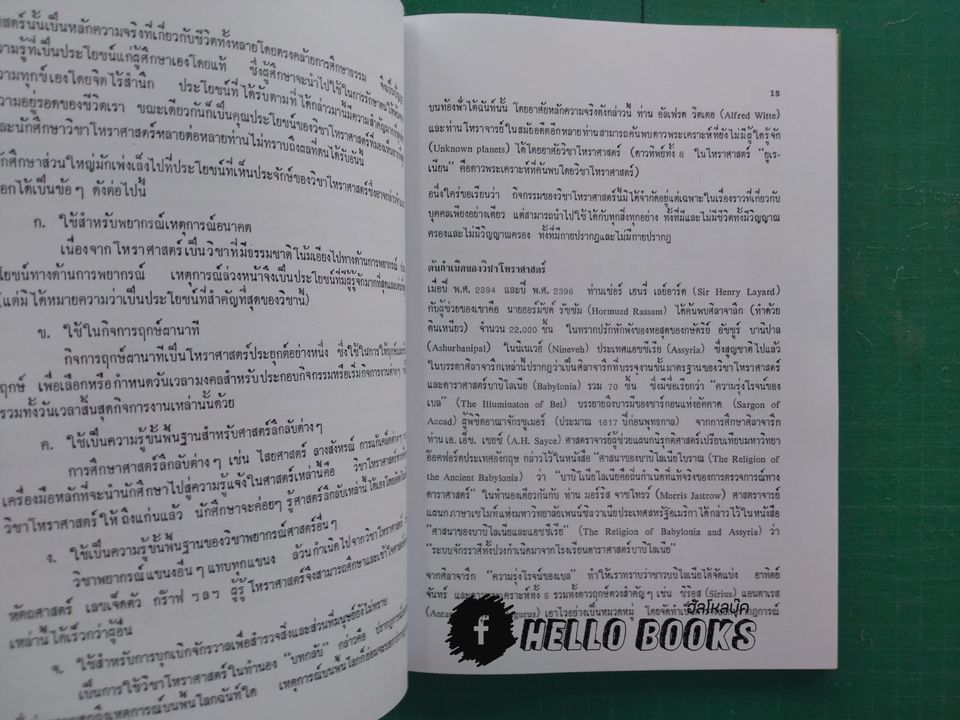 ศาสตร์นั้นเป็นหลักความจริงที่เกี่ยวกับชีวิตทั้งหลายโดยตรงคล้ายการศึกษาธรรม
ความรู้ที่เป็นประโยชน์แก่ผู้ศึกษาเองโดยแท้ ซึ่งผู้ศึกษาจะนำไปใช้ในการรักษา
ความทุกข์เองโดยจิตไร้สำนึก ประโยชน์ที่ได้รับตามที่ได้กล่าวมานี้มีความสำคัญมาก
ความอยู่รอดของชีวิตเรา ขณะเดียวกันก็เป็นคุณประโยชน์ของวิชาโหราศาสตร์ที่มองเห็น
และนักศึกษาวิชาโหราศาสตร์หลายต่อหลายท่านไม่ทราบถึงผลที่ตนได้รับอันนี้
นักศึกษาส่วนใหญ่มักเพ่งเล็งไปที่ประโยชน์ที่เห็นประจักษ์ของวิชาโหราศาสตร์ซึ่งอาจ
ออกได้เป็นข้อๆ ดังต่อไปนี้
ก. ใช้สำหรับพยากรณ์เหตุการณ์อนาคต
เนื่องจากโหราศาสตร์เป็นวิชาที่มีธรรมชาติโน้มเอียงไปทางด้านการพยากรณ์
โยชน์ทางด้านการพยากรณ์ เหตุการณ์ล่วงหน้าจึงเป็นประโยชน์ที่มีผู้รู้จักมากที่สุด
(แต่มิได้หมายความว่าเป็นประโยชน์ที่สำคัญที่สุดของวิชานี้)
ข. ใช้ในกิจการฤกษ์ผานาที
กิจการฤกษ์ผานาทีเป็นโหราศาสตร์ประยุกต์อย่างหนึ่ง ซึ่งใช้ในการให้ฤกษ์
ฤกษ์ เพื่อเลือกหรือกำหนดวันเวลามงคลสำหรับประกอบกิจกรรมหรือเริ่มกิจการงานต่างๆ
รวมทั้งวันเวลาสิ้นสุดกิจการงานเหล่านั้นด้วย
ค. ใช้เป็นความรู้ขั้นพื้นฐานสำหรับศาสตร์ลึกลับต่างๆ
การศึกษาศาสตร์ลึกลับต่างๆ เช่น ไสยศาสตร์ ลางสังหรณ์ การแก้เคล็ดต่างๆ
เครื่องมือหลักที่จะนำนักศึกษาไปสู่ความรู้แจ้งในศาสตร์เหล่านี้คือ วิชาโหราศาสตร์
วิชาโหราศาสตร์ให้ถึงแก่นแล้ว นักศึกษาจะค่อยๆ รู้ศาสตร์ลึกลับเหล่านี้ได้เอง
ง. ใช้เป็นความรู้ขั้นพื้นฐานของวิชาพยากรณ์ศาสตร์อื่นๆ
วิชาพยากรณ์แขนงอื่นๆ แทบทุกแขนง ล้วนกำเนิดไปจากวิชาโหราศาสตร์
หัตถศาสตร์ เลขเจ็ดตัว กร๊าฟ ฯลฯ ผู้รู้โหราศาสตร์จึงสามารถศึกษาและเข้าใจ
เหล่านี้ได้เร็วกว่าผู้อื่น
จ. ใช้สำหรับการบุกเบิกจักรวาลเพื่อสำรวจสิ่งและส่วนที่มนุษย์ยังไม่ทราบ
เป็นการใช้วิชาโหราศาสตร์ในทำนอง "บทกลับ" กล่าวคือ
เหตุการณ์บนพื้นโลกฉันท์ใด เหตุการณ์บนพื้นโลกก็ย่อม
13
บนท้องฟ้าได้ฉันท์นั้น โดยอาศัยหลักความจริงดังกล่าวนี้ ท่าน อัลเฟรด วิตเตอ (Alfred Witte)
และท่านโหราจารย์ในสมัยอดีตอีกหลายท่านสามารถค้นพบดาวพระเคราะห์ที่ยังไม่มีผู้ใดรู้จัก
(Unknown planets) ได้โดยอาศัยวิชาโหราศาสตร์ (ดาวทิพย์ทั้ง 8 ในโหราศาสตร์ "ยูเร-
เนียน" คือดาวพระเคราะห์ที่ค้นพบโดยวิชาโหราศาสตร์)
อนึ่งใคร่ขอเรียนว่า กิจกรรมของวิชาโหราศาสตร์นั้นมิได้จำกัดอยู่แต่เฉพาะในเรื่องราวที่เกี่ยวกับ
บุคคลเพียงอย่างเดียว แต่สามารถนำไปใช้ได้กับทุกสิ่งทุกอย่าง ทั้งที่มีและไม่มีชีวิตทั้งมีวิญญาณ
ครองและไม่มีวิญญาณครอง ทั้งที่มีกายปรากฏและไม่มีกายปรากฏ
ต้นกำเนิดของวิชาโหราศาสตร์
เมื่อปี พ.ศ. 2394 และปี พ.ศ. 2396 ท่านเซ่อร์ เฮนรี่ เลย์อาร์ด (Sir Henry Layard)
กับผู้ช่วยของเขาคือ นายออร์มัซด์ รัซซัม (Hormuzd Rassam) ได้ค้นพบศิลาจาลึก (ทำด้วย
ดินเหนียว) จำนวน 22,000 ชิ้น ในซากปรักหักพังของหอสมุดของกษัตริย์ อัชชูร์ บานิปาล
(Ashurbanipal) ในนิเนเวอ์ (Nineveh) ประเทศแอซซีเรีย (Assyria) ซึ่งสูญชาติไปแล้ว
ในบรรดาศิลาจาลึกเหล่านี้ปรากฏว่าเป็นศิลาจาลึกที่บรรจุงานชั้นมาตรฐานของวิชาโหราศาสตร์
และดาราศาสตร์บาบิโลเนีย (Babylonia) รวม 70 ชิ้น ซึ่งมีชื่อเรียกว่า "ความรุ่งโรจน์ของ
เบล" (The Illuminaton of Bel) บรรยายถึงบารมีของซาร์กอนแห่งอัคคาด (Sargon of
Accad) ผู้พิชิตอาณาจักรซูเมอร์ (ประมาณ 1817 ปีก่อนพุทธกาล) จากการศึกษาศิลาจาริก
ท่าน เอ. เอ็ช. เซยซ์ (A.H. Sayce) ศาสตราจารย์ผู้ช่วยแผกนิรุกติศาสตร์เปรียบเทียบมหาวิทยา
อ๊อคฟอร์ดประเทศอังกฤษ กล่าวไว้ในหนังสือ "ศาสนาของบาบิโลเนียโบราณ (The Religion of
the Ancient Babylonia) ว่า "บาบิโนเนียคือถิ่นกำเนิดที่แท้จริงของการตรวจการณ์ทาง
ดาราศาสตร์" ในทำนองเดียวกันกับ ท่าน มอร์ริส จาซโทรว์ (Morris Jastrow) ศาสตราจารย์
แผนก ภาษาเซไมท์แห่งมหาวิทยาลัยเพนน์ซิลวาเนียประเทศสหรัฐอเมริกา ได้กล่าวไว้ในหนังสือ
"ศาสนาของบาบิโลเนียและแอซซีเรีย" (The Religion of Babylonia and Assyria) ว่า
"ระบบจักรราศีทั้งปวงกำเนิดมาจากโรงเรียนดาราศาสตร์บาบิโลเนีย"
จากศิลาจาริก "ความรุ่งโรจน์ของเบล" ทำให้เราทราบว่าชาวบาบิโลเนียได้จัดแบ่ง อาทิตย์
จันทร์ และดาวพระเคราะห์ทั้ง 5 รวมทั้งดาวฤกษ์ดวงสำคัญๆ เช่น ซิริอุส (Sirius) แอนตาเรส
เอาไว้อย่างเป็นหมวดหมู่ โดยจัดทำเป็น
ฮัลโหลบุ๊ค
f HELLO BOOKS